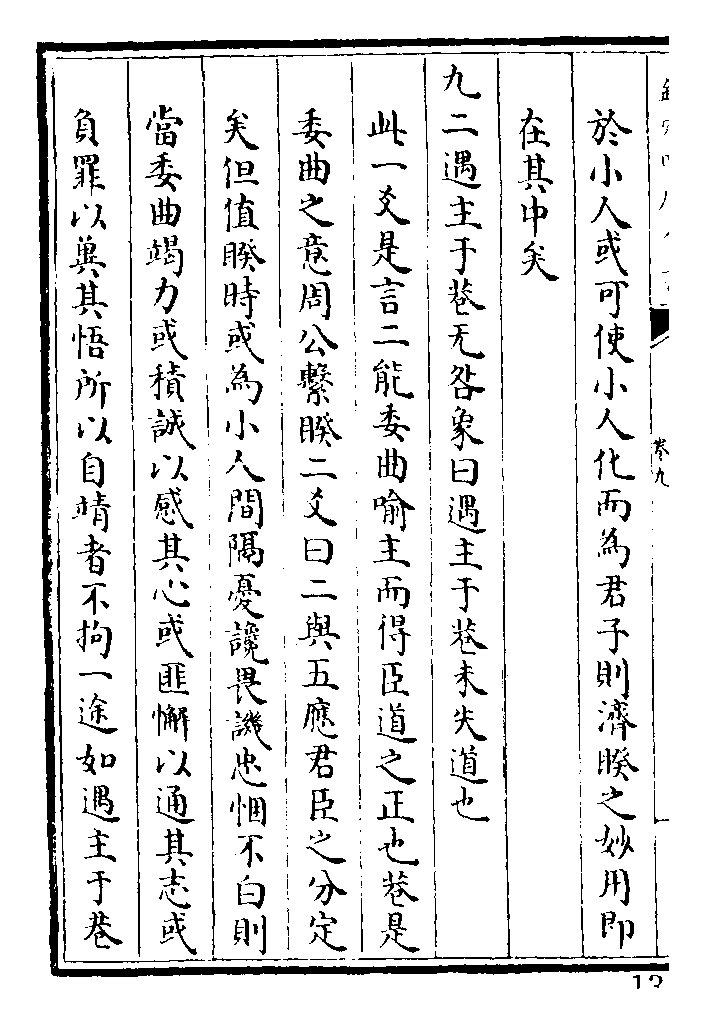 於小人或可使小人化而為君子則濟睽之妙用即
在其中矣
九二遇主于巷无咎象曰遇主于巷未失道也
此一爻是言二能委曲喻主而得臣道之正也巷是
委曲之意周公繫睽二爻曰二與五應君臣之分定
矣但值睽時或為小人間隔憂讒畏譏忠悃不白則
當委曲竭力或積誠以感其心或匪懈以通其志或
負罪以兾其悟所以自靖者不拘一途如遇主于巷
卷九